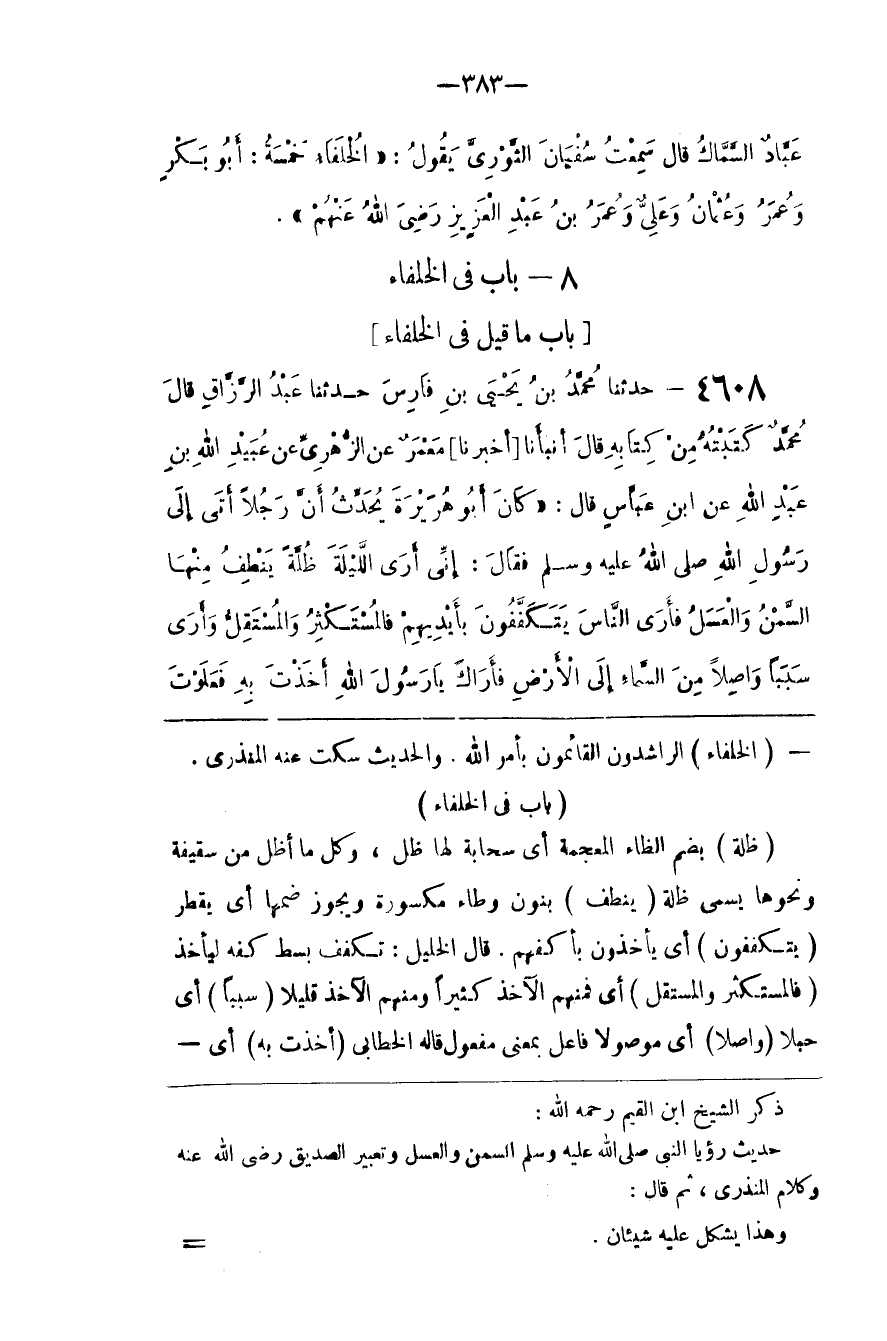 —٣٨٣—
عَبَّادٌ السَّمَّاكُ قال سَمِعْتُ سُفْيَانَ الثَّوْرِىَّ يَقُولُ : « الْخُلَفَاء خَمْسَةُ : أَبُو بَكْرٍ
وَعُمَرُ وَعُثْمَانُ وَعَلِىٌّ وَعُمَرُ بنُ عَبْدِ الْعَزِيزِ رَضِىَ اللهُ عَنْهُمْ » .
٨ — باب فى الخلفاء
[ باب ما قيل فى الخلفاء ]
٤٦٠٨ — حدثنا مُحمَّدُ بنُ يَحْيَى بنِ فَارِسَ حدثنا عَبْدُ الرَّزَّاقِ قالَ
مُحمَّدٌ كَتَبْتُهُ مِنْ كِتَابِهِ قالَ أنبأنا [ أخبرنا ] مَعْمَرٌ عن الزُّهْرِىِّ عن عُبَيْدِ اللهِ بنِ
عَبْدِ اللهِ عن ابنِ عَبَّاسٍ قال : « كَانَ أَبُو هُرَيْرَةَ يُحَدِّثُ أَنَّ رَجُلاً أَتَى إِلَى
رَسُولِ اللهِ صلى اللهُ عليه وسلم فقالَ : إِنِّى أَرَى اللَّيْلَةَ ظُلَّةً يَنْطِفُ مِنْهَا
السَّمْنُ وَالْعَسَلُ فأَرَى النَّاسَ يَتَكَفَّفُونَ بِأَيْدِيهِمْ فالمُسْتَكْثِرُ وَالمُسْتَقِلُّ وَأَرَى
سَبَباً وَاصِلاً مِنَ السَّماءِ إِلَى الْأَرْضِ فأَرَاكَ يَارَسُولَ اللهِ أَخَذْتَ بِهِ فَعَلَوْتَ
— ( الخلفاء ) الراشدون القائمون بأمر الله . والحديث سكت عنه المنذرى .
( باب فى الخلفاء )
( ظلة ) بضم الظاء المعجمة أى سحابة لها ظل ، وكل ما أظل من سقيفة
ونحوها يسمى ظلة ( ينطف ) بنون وطاء مكسورة ويجوز ضمها أى يقطر
( يتكففون ) أى يأخذون بأكفهم . قال الخليل : تكفف بسط كفه ليأخذ
( فالمستكثر والمستقل ) أى فمنهم الآخذ كثيراً ومنهم الآخذ قليلا ( سبباً ) أى
حبلا ( واصلا ) أى موصولا فاعل بمعنى مفعول قاله الخطابى ( أخذت به ) أى —
ذكر الشيخ ابن القيم رحمه الله :
حديث رؤيا النبى صلى الله عليه وسلم السمن والعسل وتعبير الصديق رضى الله عنه
وكلام المنذرى ، ثم قال :
وهذا يشكل عليه شيئان .
=